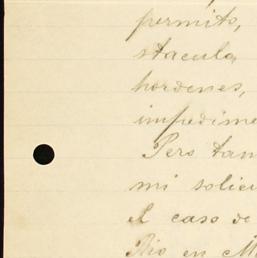 permito,
stacula
hordenes,
impedime
Pero tam
mi solici
el caso de
Rio en M